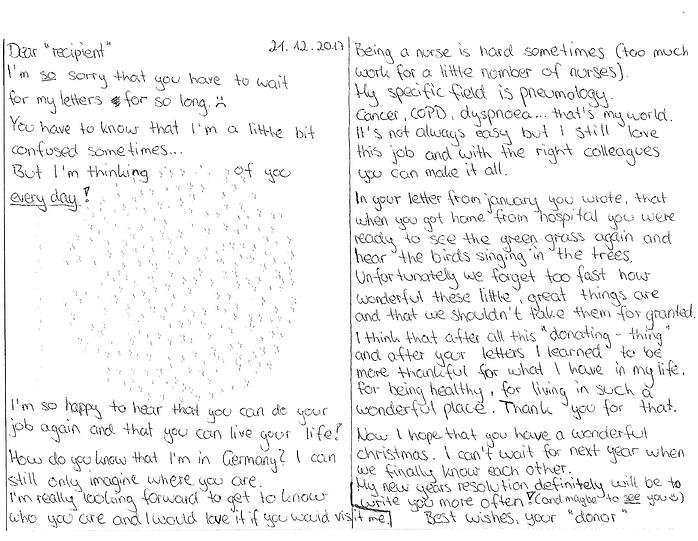 Dear "recipient" 21.12.2017
I'm so sorry that you have to wait
for my letters for so long. :(
You have to know that I'm a little bit
confused sometimes...
But I'm thinking of you
every day!
I'm so happy to hear that you can do your
job again and that you can live your life!
How do you know that I'm in Germany? I can
still only imagine where you are.
I'm really looking forward to get to know
who you are and I would love it if you would visit me.
Being a nurse is hard sometimes (too much
work for a little number of nurses).
My specific field is pneumology.
Cancer, COPD, dyspnoea... that's my world.
It's not always easy but I still love
this job and with the right colleagues
you can make it all.
In your letter from january you wrote, that
when you got home from hospital you were
ready to see the green grass again and
hear the birds singing in the trees.
Unfortunately we forget too fast how
wonderful these little, great things are
and that we shouldn't take them for granted.
I think that after all this "donating-thing"
and after your letters I learned to be
more thankful for what I have in my life,
for being healthy, for living in such a
wonderful place. Thank you for that.
Now I hope that you have a wonderful
christmas. I can't wait for next year when
we finally know each other.
My new years resolution definitely will be to
write you more often! (and maybe to see you ☺)
Best wishes, your "donor"